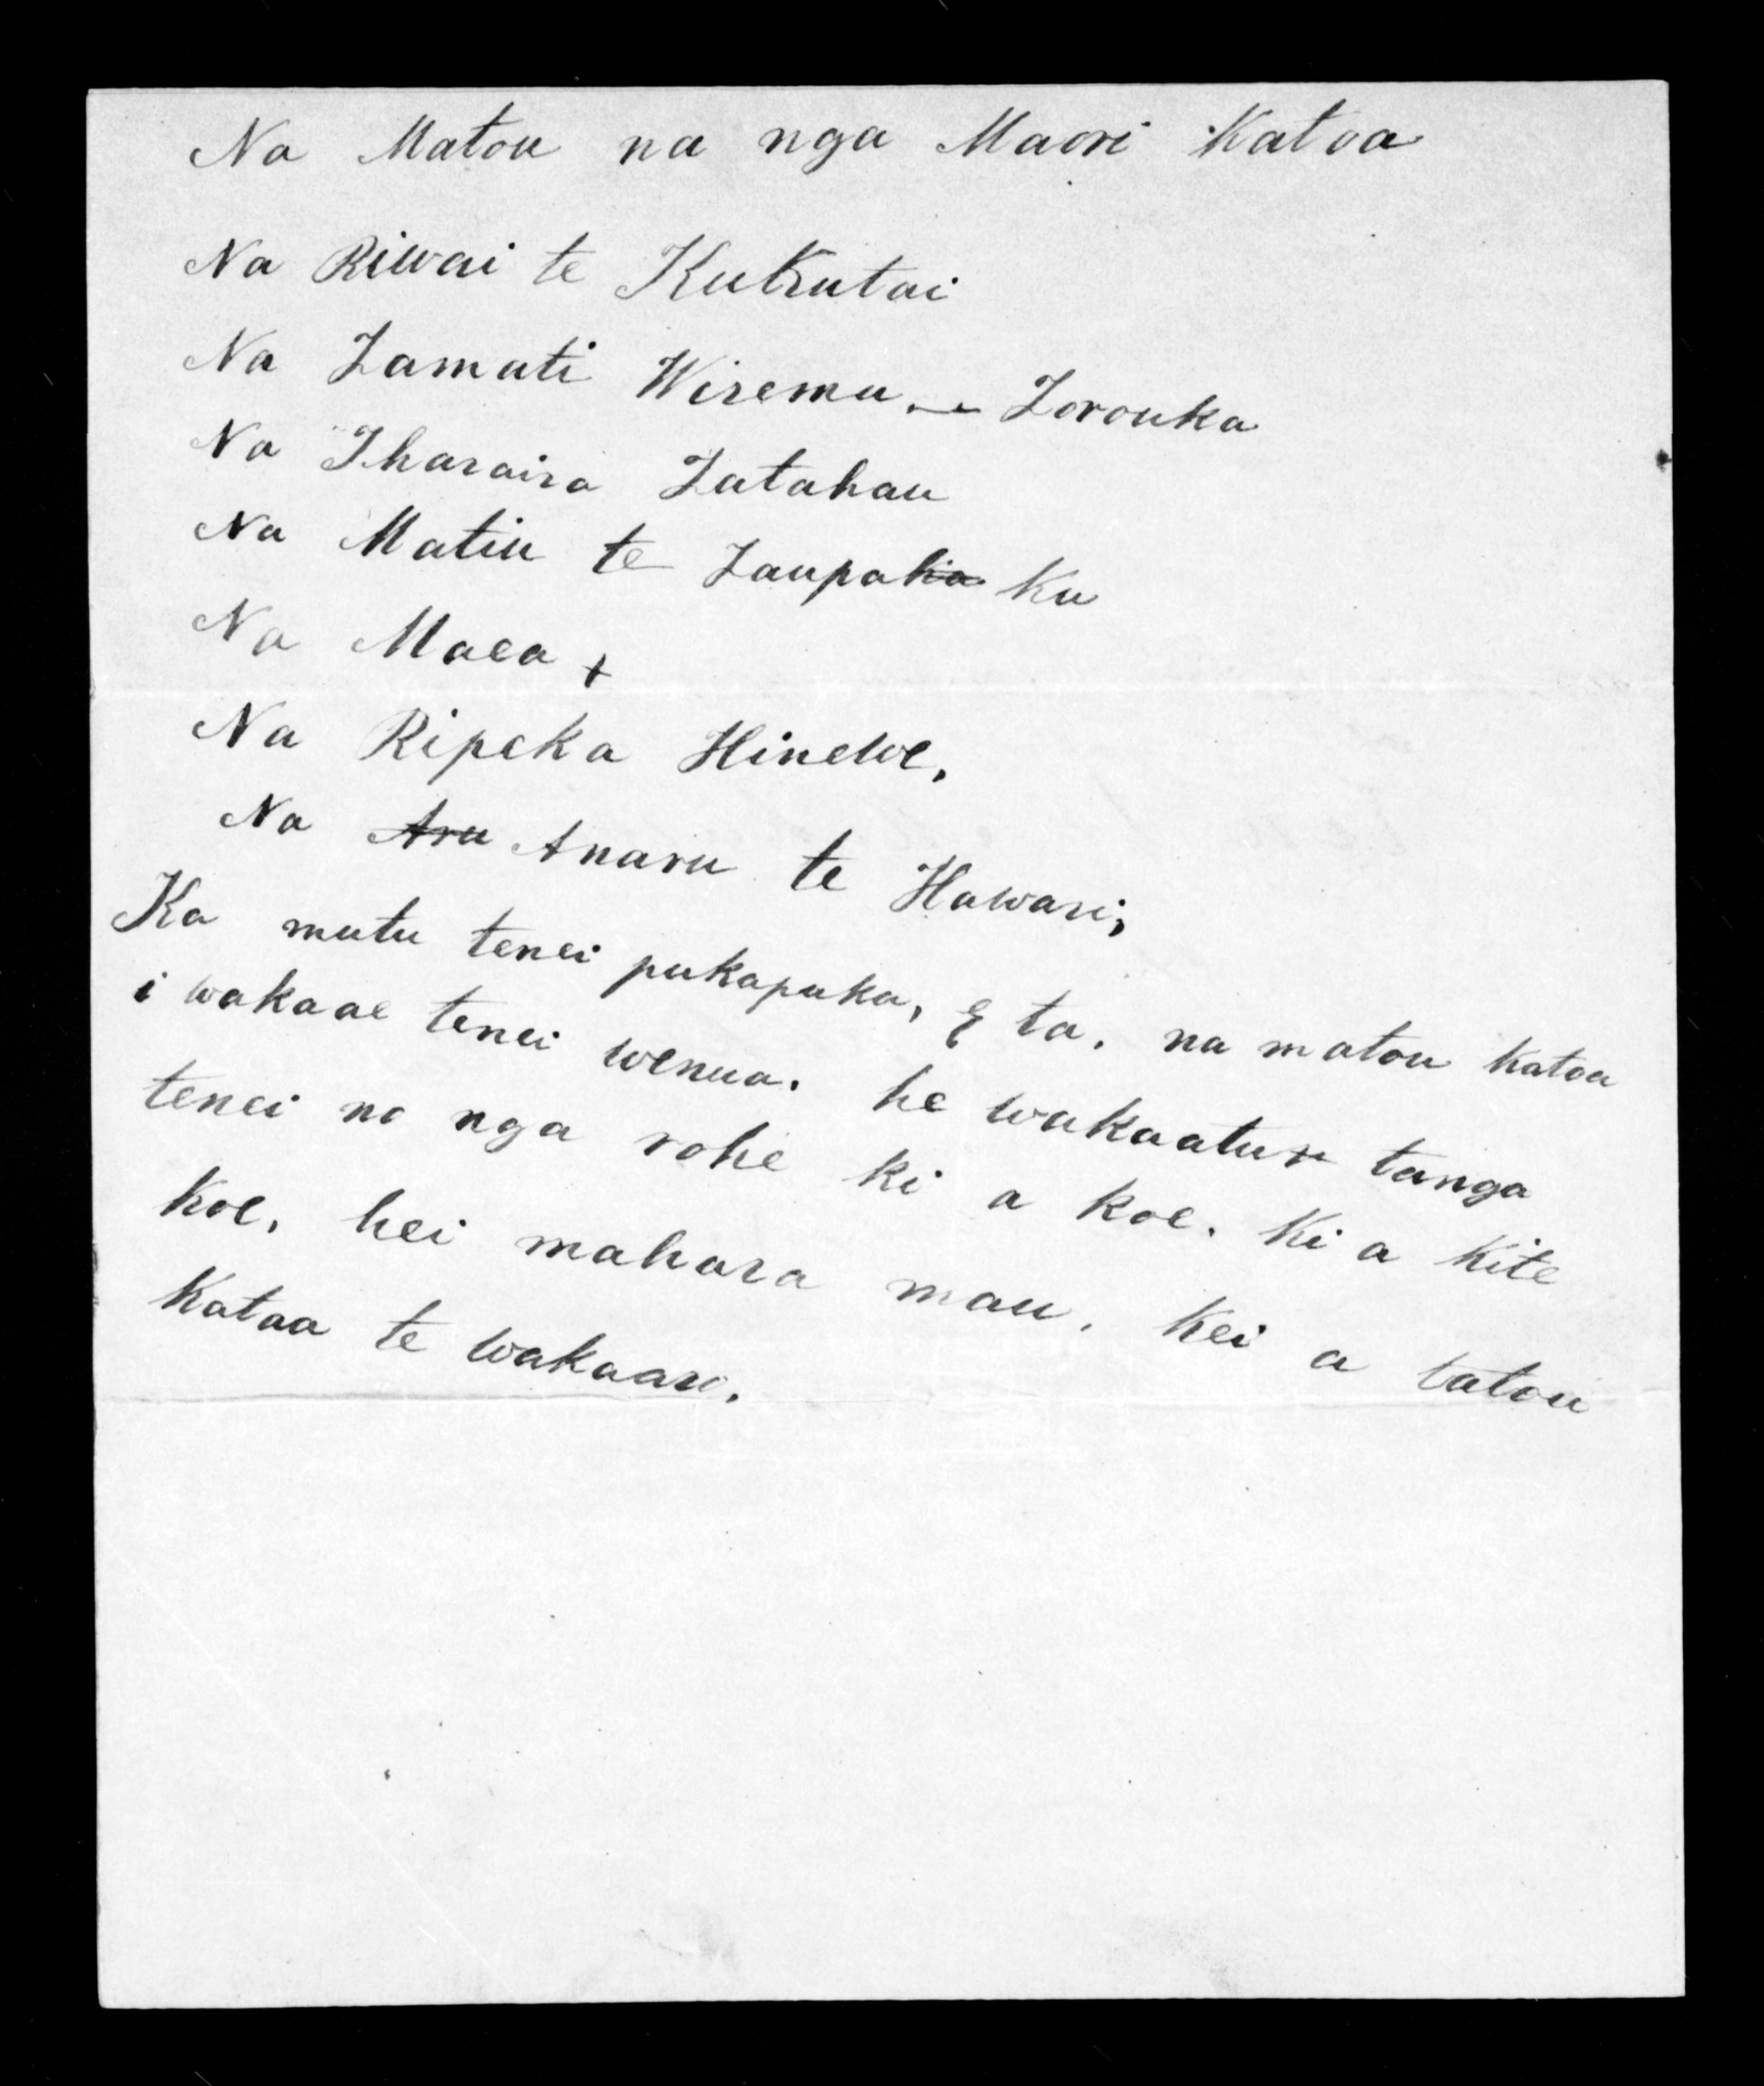 Na Matou na nga Maori Katoa
Na Riwai te Kukutai
Na Tamati Wiremu. — Torouka
Na Iharaira Tatahau
Na Matiu te Taupa Ku
Na Maea +
Na Ripeka Hinewe,
Na Aru Anaru te Hawari,
Ka mutu tenei pukapuka, E ta. na matou katoa
i wakaae tenei wenua. he wakaatu tanga
tenei no nga rohe ki a koe. Ki a Kite
Koe, hei mahara mau. Kei a tatou
Katoa te wakaaro.